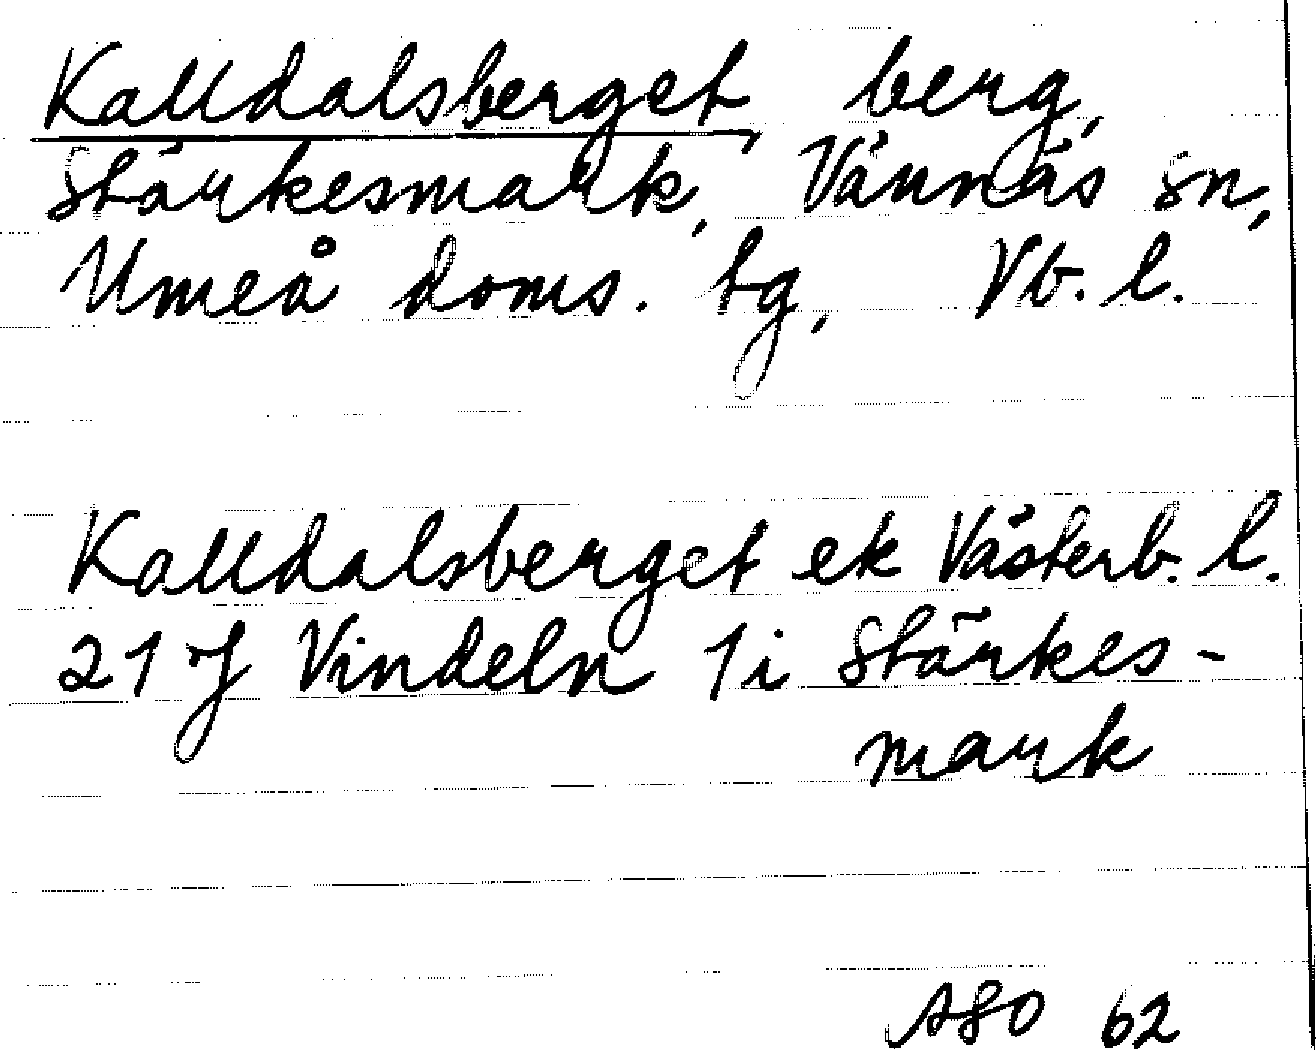 Kalldalsberget, berg,
Stärkesmark, Vännäs sn,
Umeå doms. tg, Vb. l.
Kalldalsberget ek Västerb. l.
21 J Vindeln 1i Stärkes-
mark
ASO 62